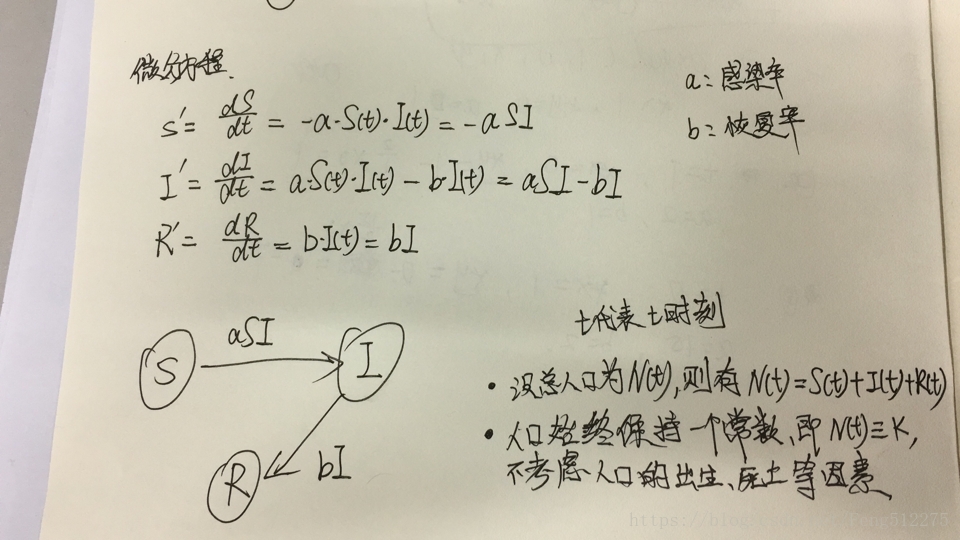 微分方程.
a: 感染率
S' = dS/dt = -a·S(t)·I(t) = -aSI
b: 恢复率
I' = dI/dt = a·S(t)·I(t) - b·I(t) = aSI - bI
R' = dR/dt = b·I(t) = bI
t代表t时刻
S aSI I
R bI
• 设总人口为N(t), 则有 N(t) = S(t) + I(t) + R(t)
• 人口始终保持一个常数, 即 N(t) ≡ K,
不考虑人口的出生、死亡等因素